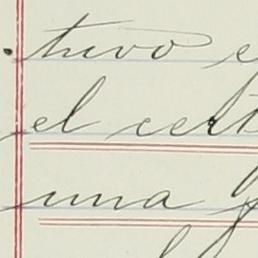 tuvo e
el cert
una